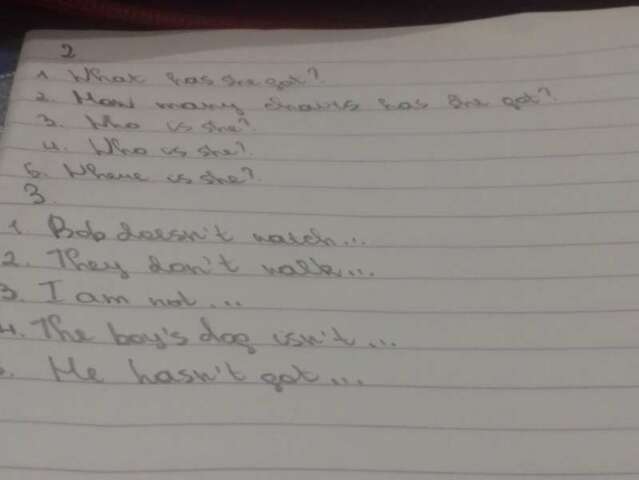 2
1 What has she got?
2. How many has she got?
3. Who is she?
4. Who is she?
5. Where is she?
3.
1. Bob doesn't watch...
2. They don't walk...
3. I am not...
4. The boy's dog isn't...
. He hasn't got...